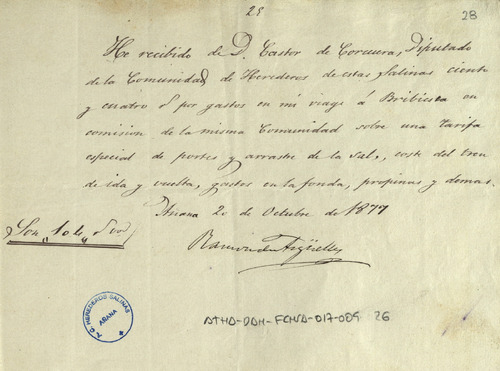 28
28
He recibido de D. Castor de Corcuera, Diputado
de la Comunidad de Herederos de estas Salinas ciento
y cuatro r.s por gastos en mi viage á Bribiesca en
comision de la misma Comunidad sobre una tarifa
especial de portes y arrastre de la Sal, coste del tren
de ida y vuelta, gastos en la fonda, propinas y demas.
Añana 20 de Octubre de 1877
Son 104 r.s
Ramon de Argüelles
A.C. HEREDEROS SALINAS
AÑANA
ATHA-DAH-FCHSA-017-009 26